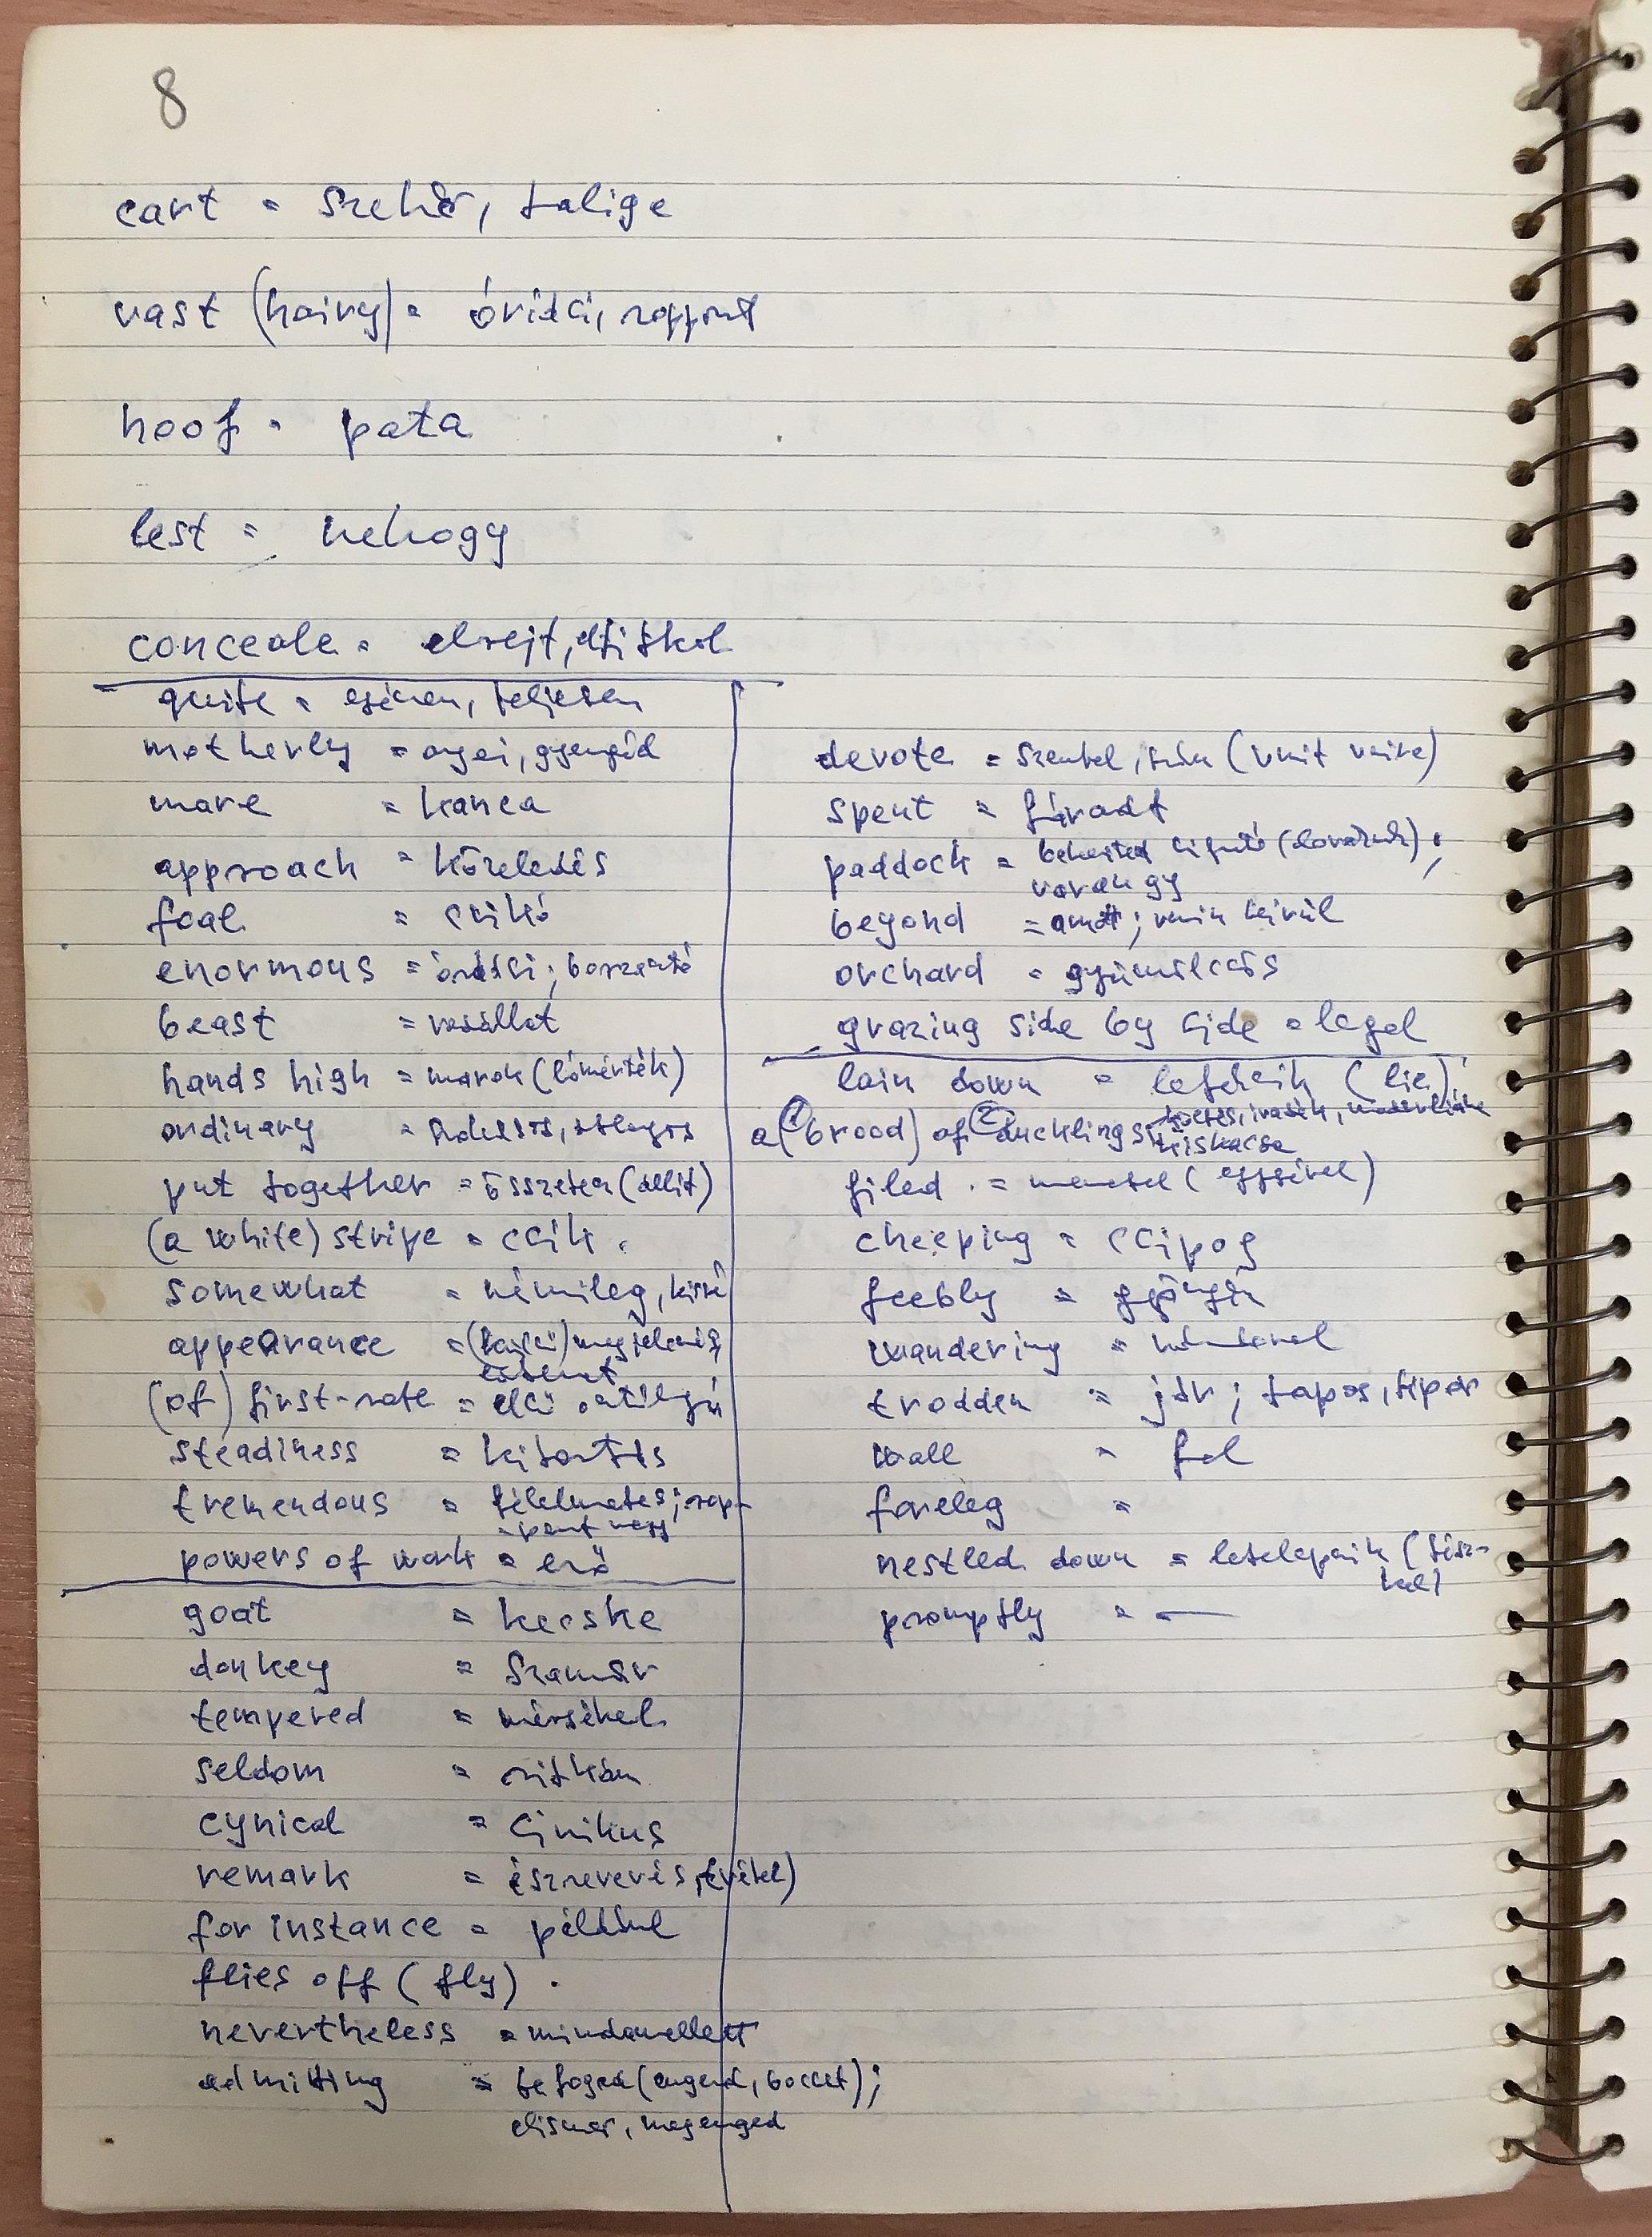 8
cart = szekér, taliga
vast (hairy) = óriási, roppant
hoof = pata
lest = nehogy
conceale = elrejt, eltitkol
quite = egészen, teljesen
motherly = anyai, gyengéd
mare = kanca
approach = közeledés
foal = csikó
enormous = óriási; borzasztó
beast = vadállat
hands high = marok (lómérték)
ordinary = szokásos, átlagos
put together = összetesz (állít)
(a white) stripe = csík.
somewhat = némileg, kissé
appearance = (külső) megjelenés,
(of) first-rate = első osztályú
steadiness = kitartás
tremendous = félelmetes; rop-
pant nagy
powers of work = erő
goat = kecske
donkey = szamár
tempered = mérsékel
seldom = ritkán
cynical = cinikus
remark = észrevevés, (vétel)
for instance = például
flies off (fly) .
nevertheless = mindamellett
admitting = befogad (enged, bocsát);
elismer, megenged
devote = szentel, szán (vmit vmire)
spent = fáradt
paddock = bekerített kifutó (lovaknak);
varangy
beyond = amott; vmin kívül
orchard = gyümölcsös
grazing side by side = legel
lain down = lefekszik (lie)
a (1 brood) of 2 ducklings =
kiskacsa
filed = menetel (egysével)
cheeping = csipog
feebly = gyöngén
wandering = vándorol
trodden = jár; tapos, tipor
wall = fal
foreleg =
nestled down = letelepszik (fész-
kel)
promptly = —